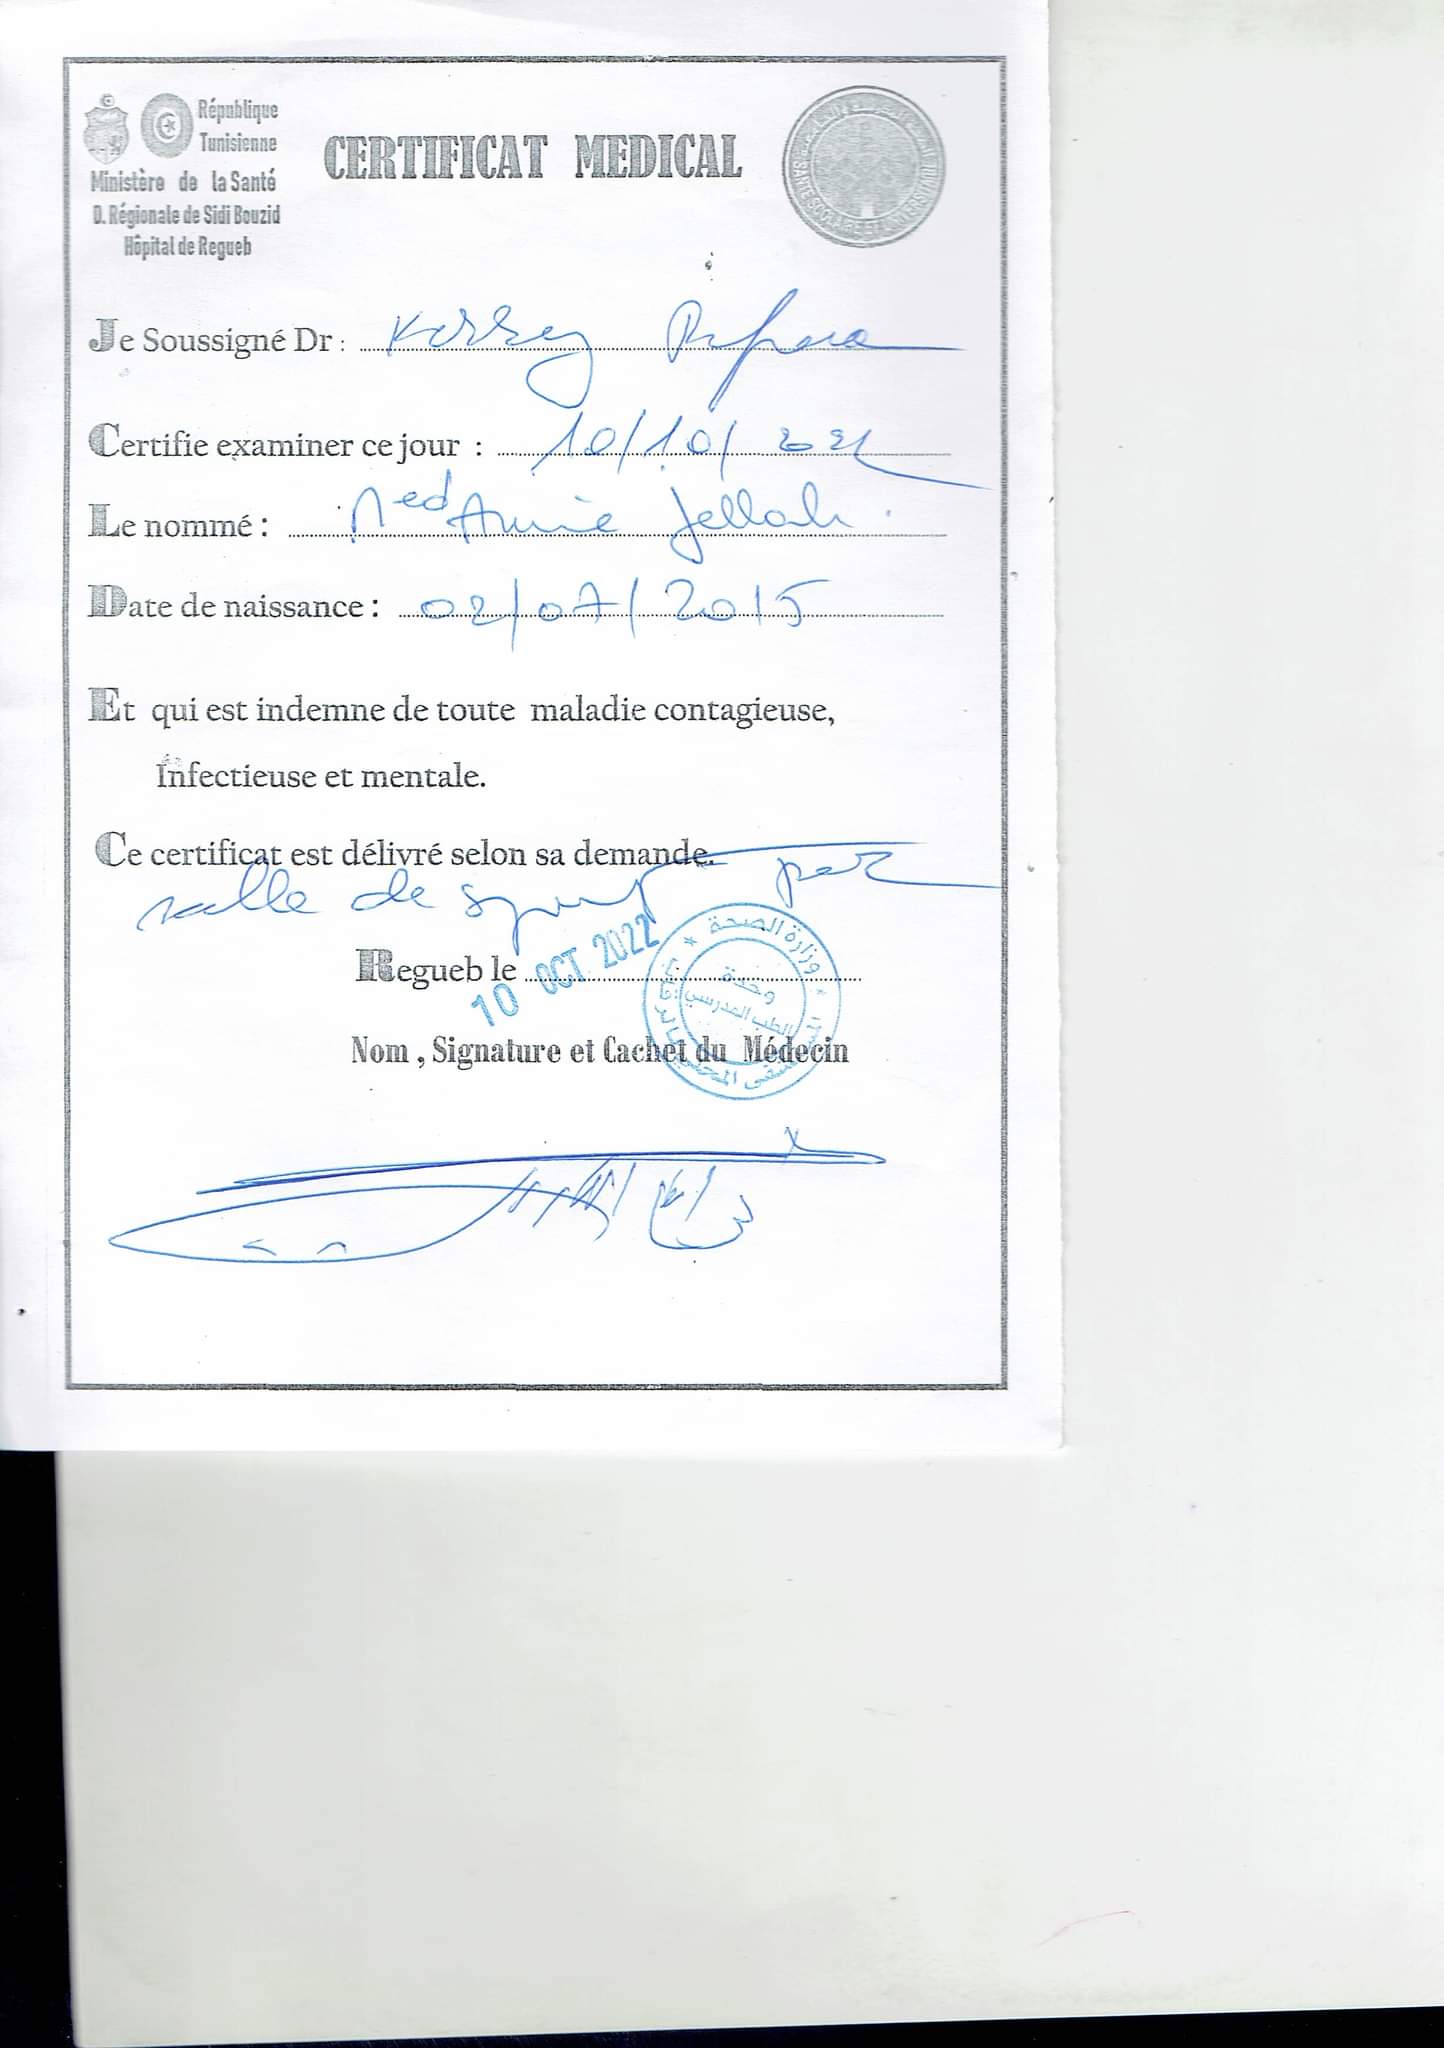 République
Tunisienne
Ministère de la Santé
D. Régionale de Sidi Bouzid
Hôpital de Regueb
CERTIFICAT MEDICAL
Je Soussigné Dr :
Certifie examiner ce jour : 10/10/2022
Le nommé : Med Amine Jellali
Date de naissance : 02/07/2015
Et qui est indemne de toute maladie contagieuse,
Infectieuse et mentale.
Ce certificat est délivré selon sa demande.
salle de sport
Regueb le 10 OCT 2022
وزارة الصحة
وحدة
الطب المدرسي
Nom , Signature et Cachet du Médecin